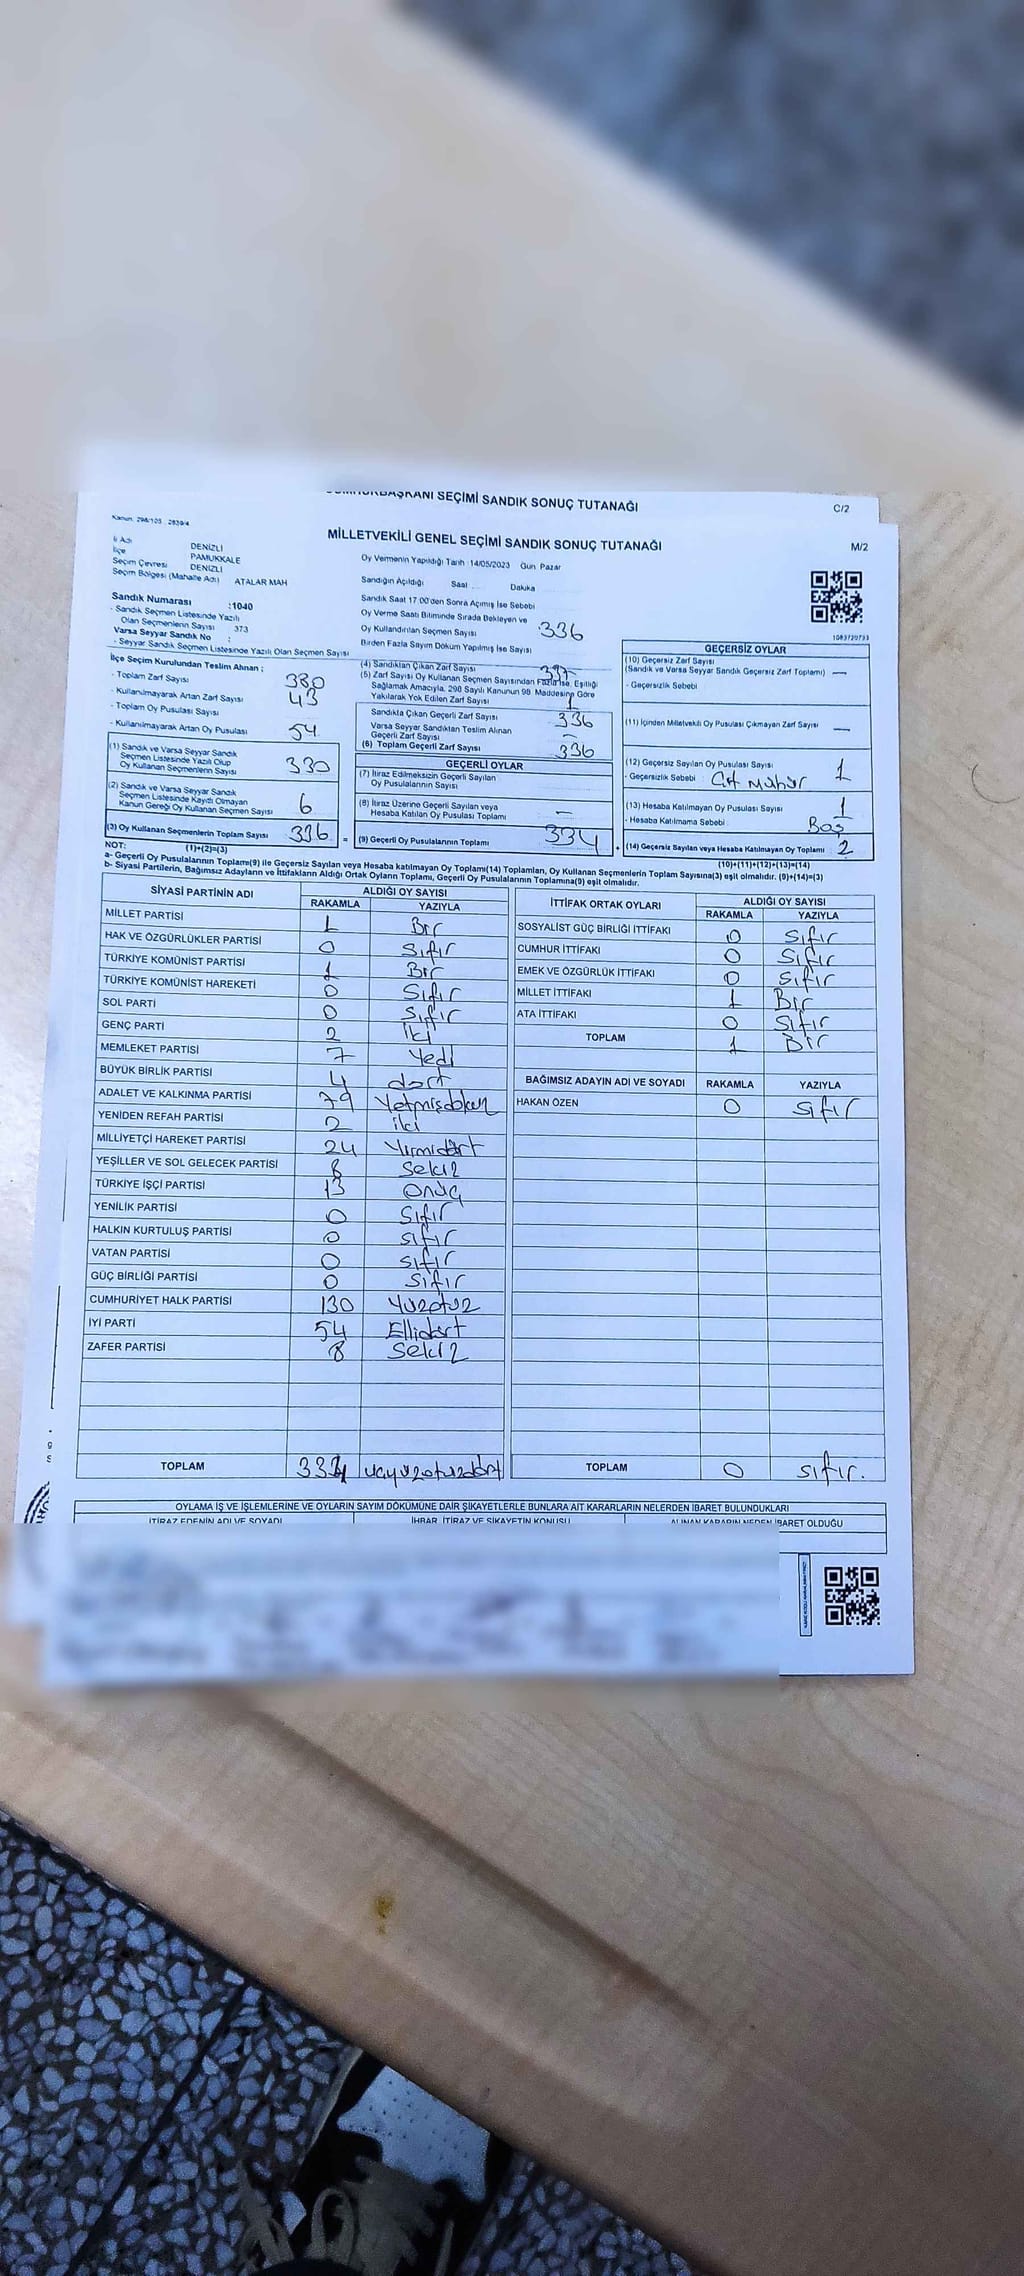 CUMHURBAŞKANI SEÇİMİ SANDIK SONUÇ TUTANAĞI
C/2
Kanun: 298/105 , 2839/4
MİLLETVEKİLİ GENEL SEÇİMİ SANDIK SONUÇ TUTANAĞI
M/2
İl Adı DENİZLİ
İlçe PAMUKKALE
Seçim Çevresi DENİZLİ
Seçim Bölgesi (Mahalle Adı) ATALAR MAH
Sandık Numarası :1040
- Sandık Seçmen Listesinde Yazılı
Olan Seçmenlerin Sayısı 373
Varsa Seyyar Sandık No :
- Seyyar Sandık Seçmen Listesinde Yazılı Olan Seçmen Sayısı
Oy Vermenin Yapıldığı Tarih :14/05/2023 Gün: Pazar
Sandığın Açıldığı Saat Dakika
Sandık Saat 17:00'den Sonra Açımış İse Sebebi
Oy Verme Saati Bitiminde Sırada Bekleyen ve
Oy Kullandırılan Seçmen Sayısı 336
Birden Fazla Sayım Döküm Yapılmış İse Sayısı
1083720733
İlçe Seçim Kurulundan Teslim Alınan :
- Toplam Zarf Sayısı 380
- Kullanılmayarak Artan Zarf Sayısı 43
- Toplam Oy Pusulası Sayısı
- Kullanılmayarak Artan Oy Pusulası 54
(1) Sandık ve Varsa Seyyar Sandık
Seçmen Listesinde Yazılı Olup
Oy Kullanan Seçmenlerin Sayısı 330
(2) Sandık ve Varsa Seyyar Sandık
Seçmen Listesinde Kayıtlı Olmayan
Kanun Gereği Oy Kullanan Seçmen Sayısı 6
(3) Oy Kullanan Seçmenlerin Toplam Sayısı 336 =
(4) Sandıktan Çıkan Zarf Sayısı 337
(5) Zarf Sayısı Oy Kullanan Seçmen Sayısından Fazla İse, Eşitliği
Sağlamak Amacıyla, 298 Sayılı Kanunun 98. Maddesine Göre
Yakılarak Yok Edilen Zarf Sayısı 1
Sandıkta Çıkan Geçerli Zarf Sayısı 336
Varsa Seyyar Sandıktan Teslim Alınan
Geçerli Zarf Sayısı —
(6) Toplam Geçerli Zarf Sayısı 336
GEÇERLİ OYLAR
(7) İtiraz Edilmeksizin Geçerli Sayılan
Oy Pusulalarının Sayısı
(8) İtiraz Üzerine Geçerli Sayılan veya
Hesaba Katılan Oy Pusulası Toplamı —
(9) Geçerli Oy Pusulalarının Toplamı 334 +
GEÇERSİZ OYLAR
(10) Geçersiz Zarf Sayısı
(Sandık ve Varsa Seyyar Sandık Geçersiz Zarf Toplamı) —
- Geçersizlik Sebebi
(11) İçinden Milletvekili Oy Pusulası Çıkmayan Zarf Sayısı —
(12) Geçersiz Sayılan Oy Pusulası Sayısı 1
- Geçersizlik Sebebi : Çift Mühür
(13) Hesaba Katılmayan Oy Pusulası Sayısı 1
- Hesaba Katılmama Sebebi Boş
(14) Geçersiz Sayılan veya Hesaba Katılmayan Oy Toplamı 2
NOT: (1)+(2)=(3)
(10)+(11)+(12)+(13)=(14)
a- Geçerli Oy Pusulalarının Toplamı(9) ile Geçersiz Sayılan veya Hesaba katılmayan Oy Toplamı(14) Toplamları, Oy Kullanan Seçmenlerin Toplam Sayısına(3) eşit olmalıdır. (9)+(14)=(3)
b- Siyasi Partilerin, Bağımsız Adayların ve İttifakların Aldığı Ortak Oyların Toplamı, Geçerli Oy Pusulalarının Toplamına(9) eşit olmalıdır.
SİYASİ PARTİNİN ADI ALDIĞI OY SAYISI
RAKAMLA YAZIYLA
MİLLET PARTİSİ 1 Bir
HAK VE ÖZGÜRLÜKLER PARTİSİ 0 Sıfır
TÜRKİYE KOMÜNİST PARTİSİ 1 Bir
TÜRKİYE KOMÜNİST HAREKETİ 0 Sıfır
SOL PARTİ 0 Sıfır
GENÇ PARTİ 2 İki
MEMLEKET PARTİSİ 7 Yedi
BÜYÜK BİRLİK PARTİSİ 4 dört
ADALET VE KALKINMA PARTİSİ 79 Yetmişdokuz
YENİDEN REFAH PARTİSİ 2 iki
MİLLİYETÇİ HAREKET PARTİSİ 24 Yirmidört
YEŞİLLER VE SOL GELECEK PARTİSİ 8 Sekiz
TÜRKİYE İŞÇİ PARTİSİ 13 Onüç
YENİLİK PARTİSİ 0 Sıfır
HALKIN KURTULUŞ PARTİSİ 0 sıfır
VATAN PARTİSİ 0 sıfır
GÜÇ BİRLİĞİ PARTİSİ 0 Sıfır
CUMHURİYET HALK PARTİSİ 130 Yüzotuz
İYİ PARTİ 54 Ellidört
ZAFER PARTİSİ 8 Sekiz
TOPLAM 334 üçyüzotuzdört
İTTİFAK ORTAK OYLARI ALDIĞI OY SAYISI
RAKAMLA YAZIYLA
SOSYALİST GÜÇ BİRLİĞİ İTTİFAKI 0 sıfır
CUMHUR İTTİFAKI 0 sıfır
EMEK VE ÖZGÜRLÜK İTTİFAKI 0 sıfır
MİLLET İTTİFAKI 1 Bir
ATA İTTİFAKI 0 Sıfır
TOPLAM 1 Bir
BAĞIMSIZ ADAYIN ADI VE SOYADI RAKAMLA YAZIYLA
HAKAN ÖZEN 0 sıfır
TOPLAM 0 sıfır.
OYLAMA İŞ VE İŞLEMLERİNE VE OYLARIN SAYIM DÖKÜMÜNE DAİR ŞİKAYETLERLE BUNLARA AİT KARARLARIN NELERDEN İBARET BULUNDUKLARI
İTİRAZ EDENİN ADI VE SOYADI İHBAR, İTİRAZ VE ŞİKAYETİN KONUSU ALINAN KARARIN NEDEN İBARET OLDUĞU